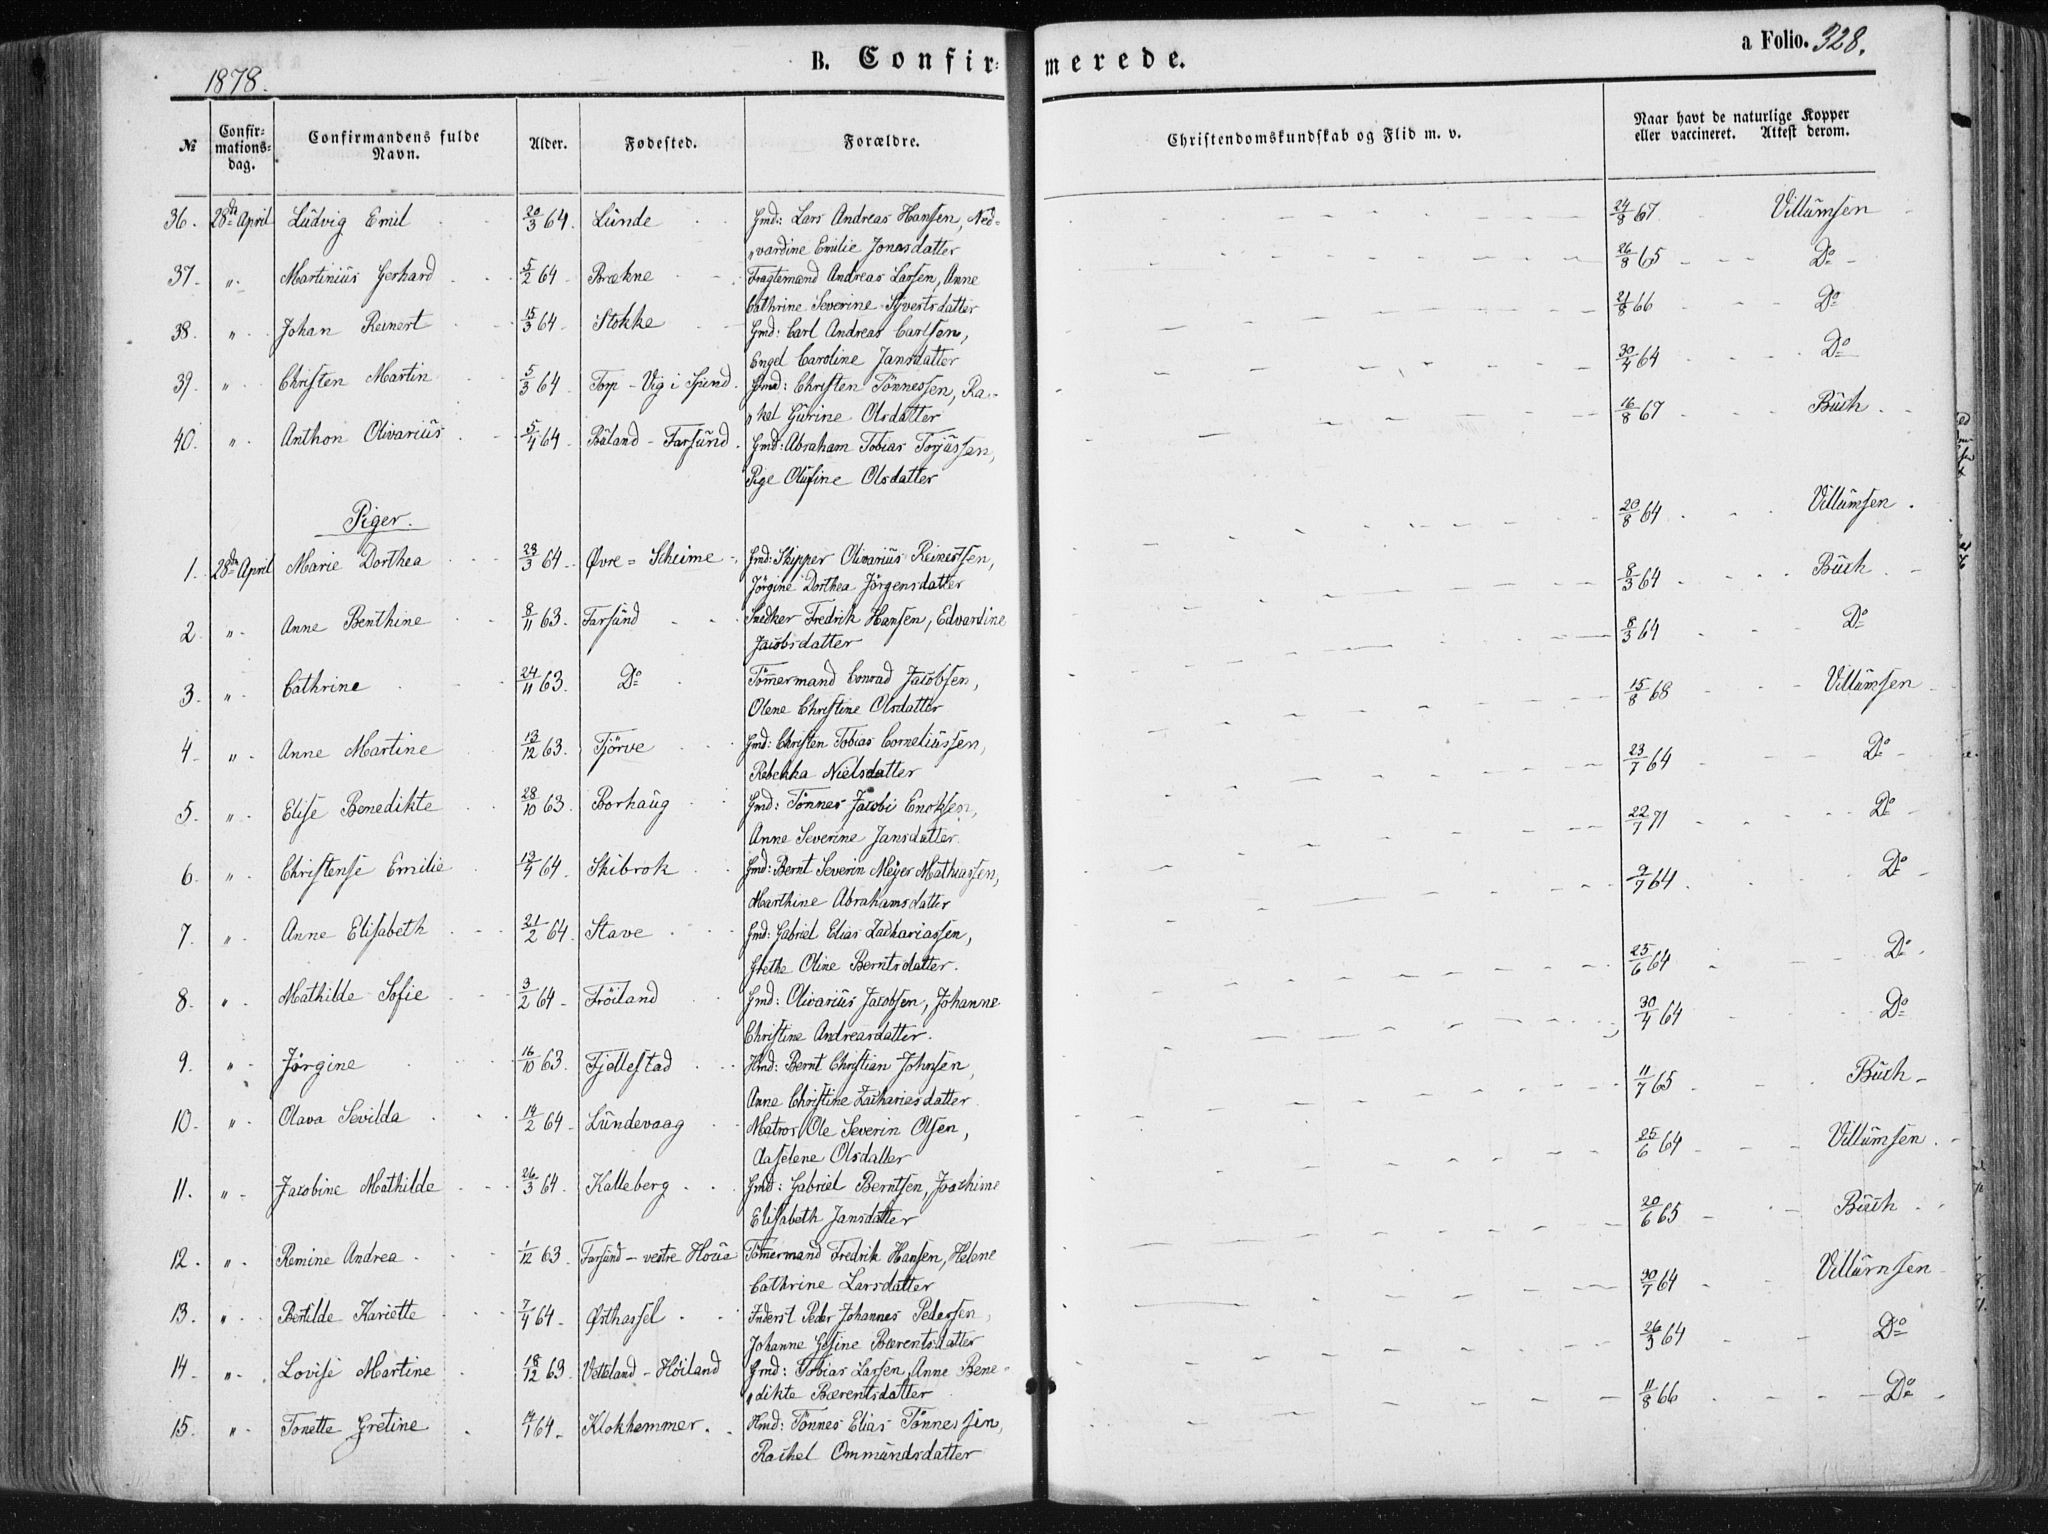 1878.
B. Confirmerede.
a Folio. 328.
№
Confirmationsdag.
Confirmandens fulde Navn.
Alder.
Fødested.
Forældre.
Christendomskundskab og Flid m. v.
Naar havt de naturlige Kopper eller vaccineret. Attest derom.
36. 28de April Ludvig Emil 20/3 64. Lunde Gmd: Lars Andreas Hansen, Ned= 24/8 67 Villumsen
"vardine Emilie Jonasdatter
37. " Martinius Gerhard 5/2 64 Brækne Fragtemand Andreas Larsen, Anne 26/8 65 Do
Cathrine Severine Syvertsdatter
38. " Johan Reinert 15/3 64 Stokke Gmd: Carl Andreas Carlsen, 21/8 66 Do
Engel Caroline Jansdatter
39. " Christen Martin 5/3 64. Torp - Vig i Spind. Gmd: Christen Tönnessen, Ra= 30/4 64 Do
"kel Gurine Olsdatter
40. " Anthon Olivarius 5/4 64 Båland - Farsund. Gmd: Abraham Tobias Torjussen, 16/8 67 Buch
Pige Olufine Olsdatter
Piger.
1. 28de April Marie Dorthea 23/3 64 Øvre = Skeime Gmd: Skipper Olivarius Reinertsen, 20/8 64 Villumsen.
Jørgine Dorthea Jørgensdatter
2. " Anne Benthine 8/11 63. Farsund Snedker Fredrik Hansen, Edvardine 8/3 64 Buch
Jacobsdatter
3. " Cathrine 24/11 63. Do Tömmermand Conrad Jacobsen, 8/3 64 Do
Olene Christine Olsdatter
4. " Anne Martine 13/12 63. Tjörve Gmd: Christen Tobias Corneliussen, 15/8 68 Villumsen
Rebekka Nielsdatter
5. " Elise Benedikte 28/10 63. Borhaug Gmd: Tönnes Jacobi Enoksen, 23/7 64 Do
Anne Severine Jansdatter
6. " Christense Emilie 13/4 64. Skibrok Gmd: Bernt Severin Meyer Mathiassen, 22/7 71 Do
Marthine Abrahamsdatter
7. " Anne Elisabeth 21/2 64. Stave Gmd: Gabriel Elias Zachariassen, 9/7 64 Do
Grethe Oline Berntsdatter.
8. " Mathilde Sofie 3/2 64 Fröiland Gmd: Olivarius Jacobsen, Johanne 25/6 64 Do
Christine Andreasdatter.
9. " Jörgine 16/10 63. Fjellestad Hmd: Bernt Christian Johnsen, 30/4 64 Do
Anne Christine Zachariasdatter
10. " Olava Sevilda 14/2 64 Lundevaag Matros Ole Severin Olsen, 11/7 65 Buch
Aaselene Olsdatter
11. " Jacobine Mathilde 26/3 64. Kalleberg Gmd: Gabriel Berntsen, Joachime 25/6 64 Villumsen.
Elisabeth Jansdatter
12. " Remine Andrea 1/12 63. Farsund - vestre Houa Tömmermand Fredrik Hansen, Helene 20/6 65 Buch
Cathrine Larsdatter
13. " Bertilde Kariette 7/4 64 Østhassel Inderst Peder Johannes Pedersen, 30/7 64 Villumsen
Johanne Gesine Bærentsdatter
14. " Lovise Martine 18/12 63. Vetteland - Höiland Gmd: Tobias Larsen, Anne Bene= 26/3 64 Do
"dikte Bærentsdatter
15. " Tonette Gretine 14/1 64 Klokhammer. Hmd: Tönnes Elias Tönnessen, 11/8 66 Do
Rachel Ommundsdatter